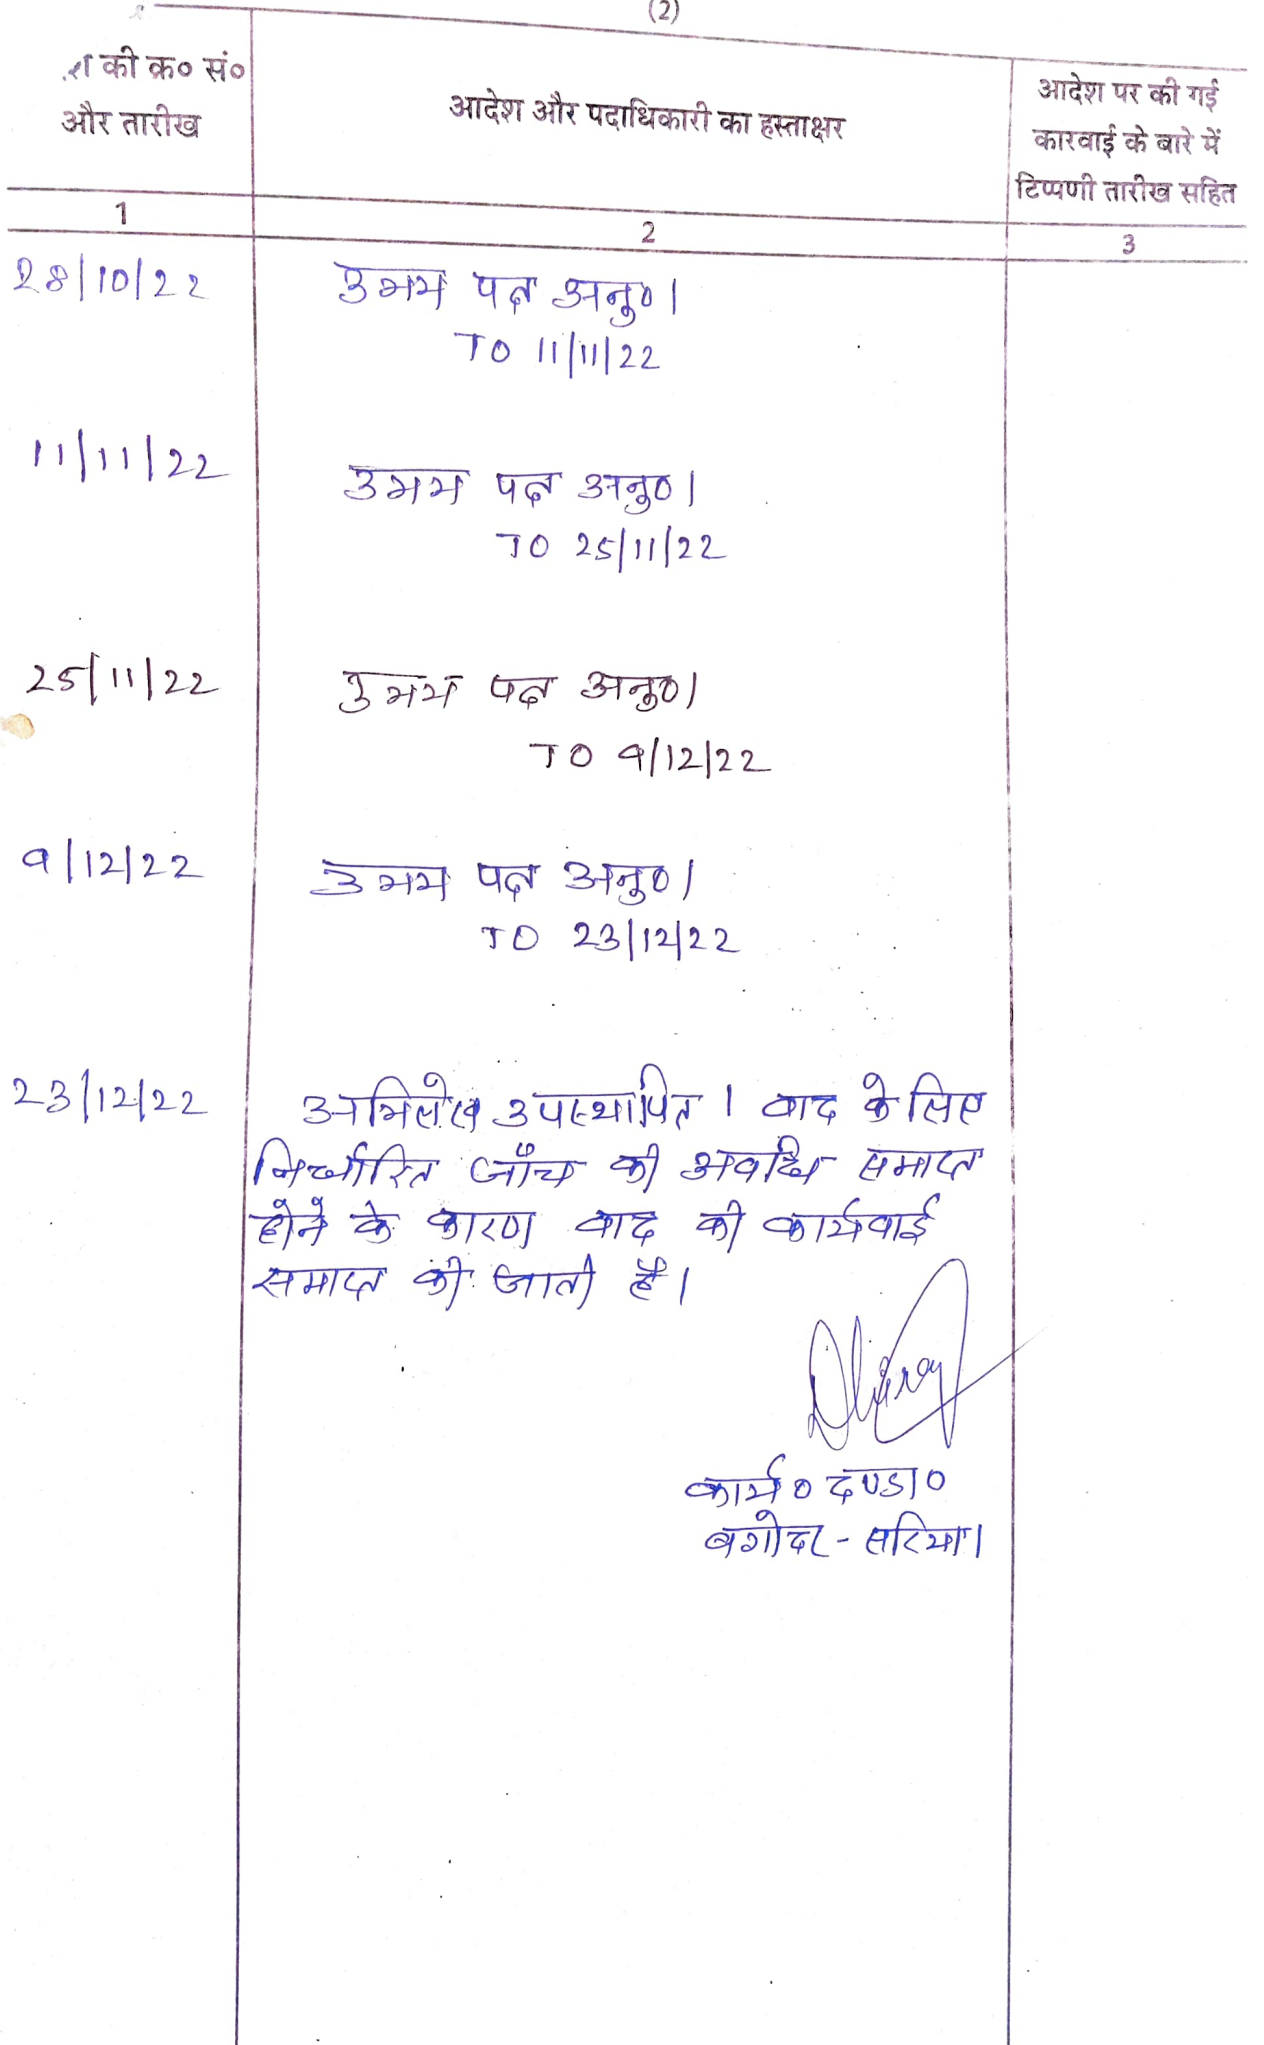 (2)
श की क्र० सं०
और तारीख
आदेश और पदाधिकारी का हस्ताक्षर
आदेश पर की गई
कारवाई के बारे में
टिप्पणी तारीख सहित
1
2
3
28/10/22
उभय पक्ष अनु०।
TO 11/11/22
11/11/22
उभय पक्ष अनु०।
TO 25/11/22
25/11/22
उभय पक्ष अनु०।
TO 9/12/22
9/12/22
उभय पक्ष अनु०।
TO 23/12/22
23/12/22
अभिलेख उपस्थापित । वाद के लिए
निर्धारित जाँच की अवधि समाप्त
होने के कारण वाद की कार्यवाई
समाप्त की जाती है।
कार्य० दण्डा०
बगोदर - सरिया।